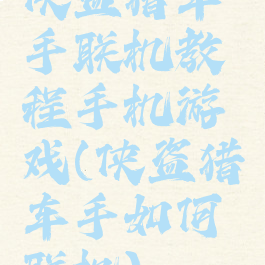 侠盗猎车
手联机教
程手机游
戏(侠盗猎
车手如何
联机)